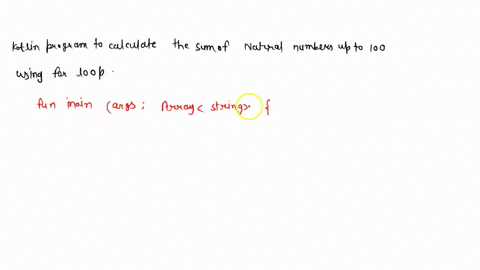 Kotlin program to calculate the sum of Natural numbers up to 100
using for loop.
fun main (args ; Array < strings. {